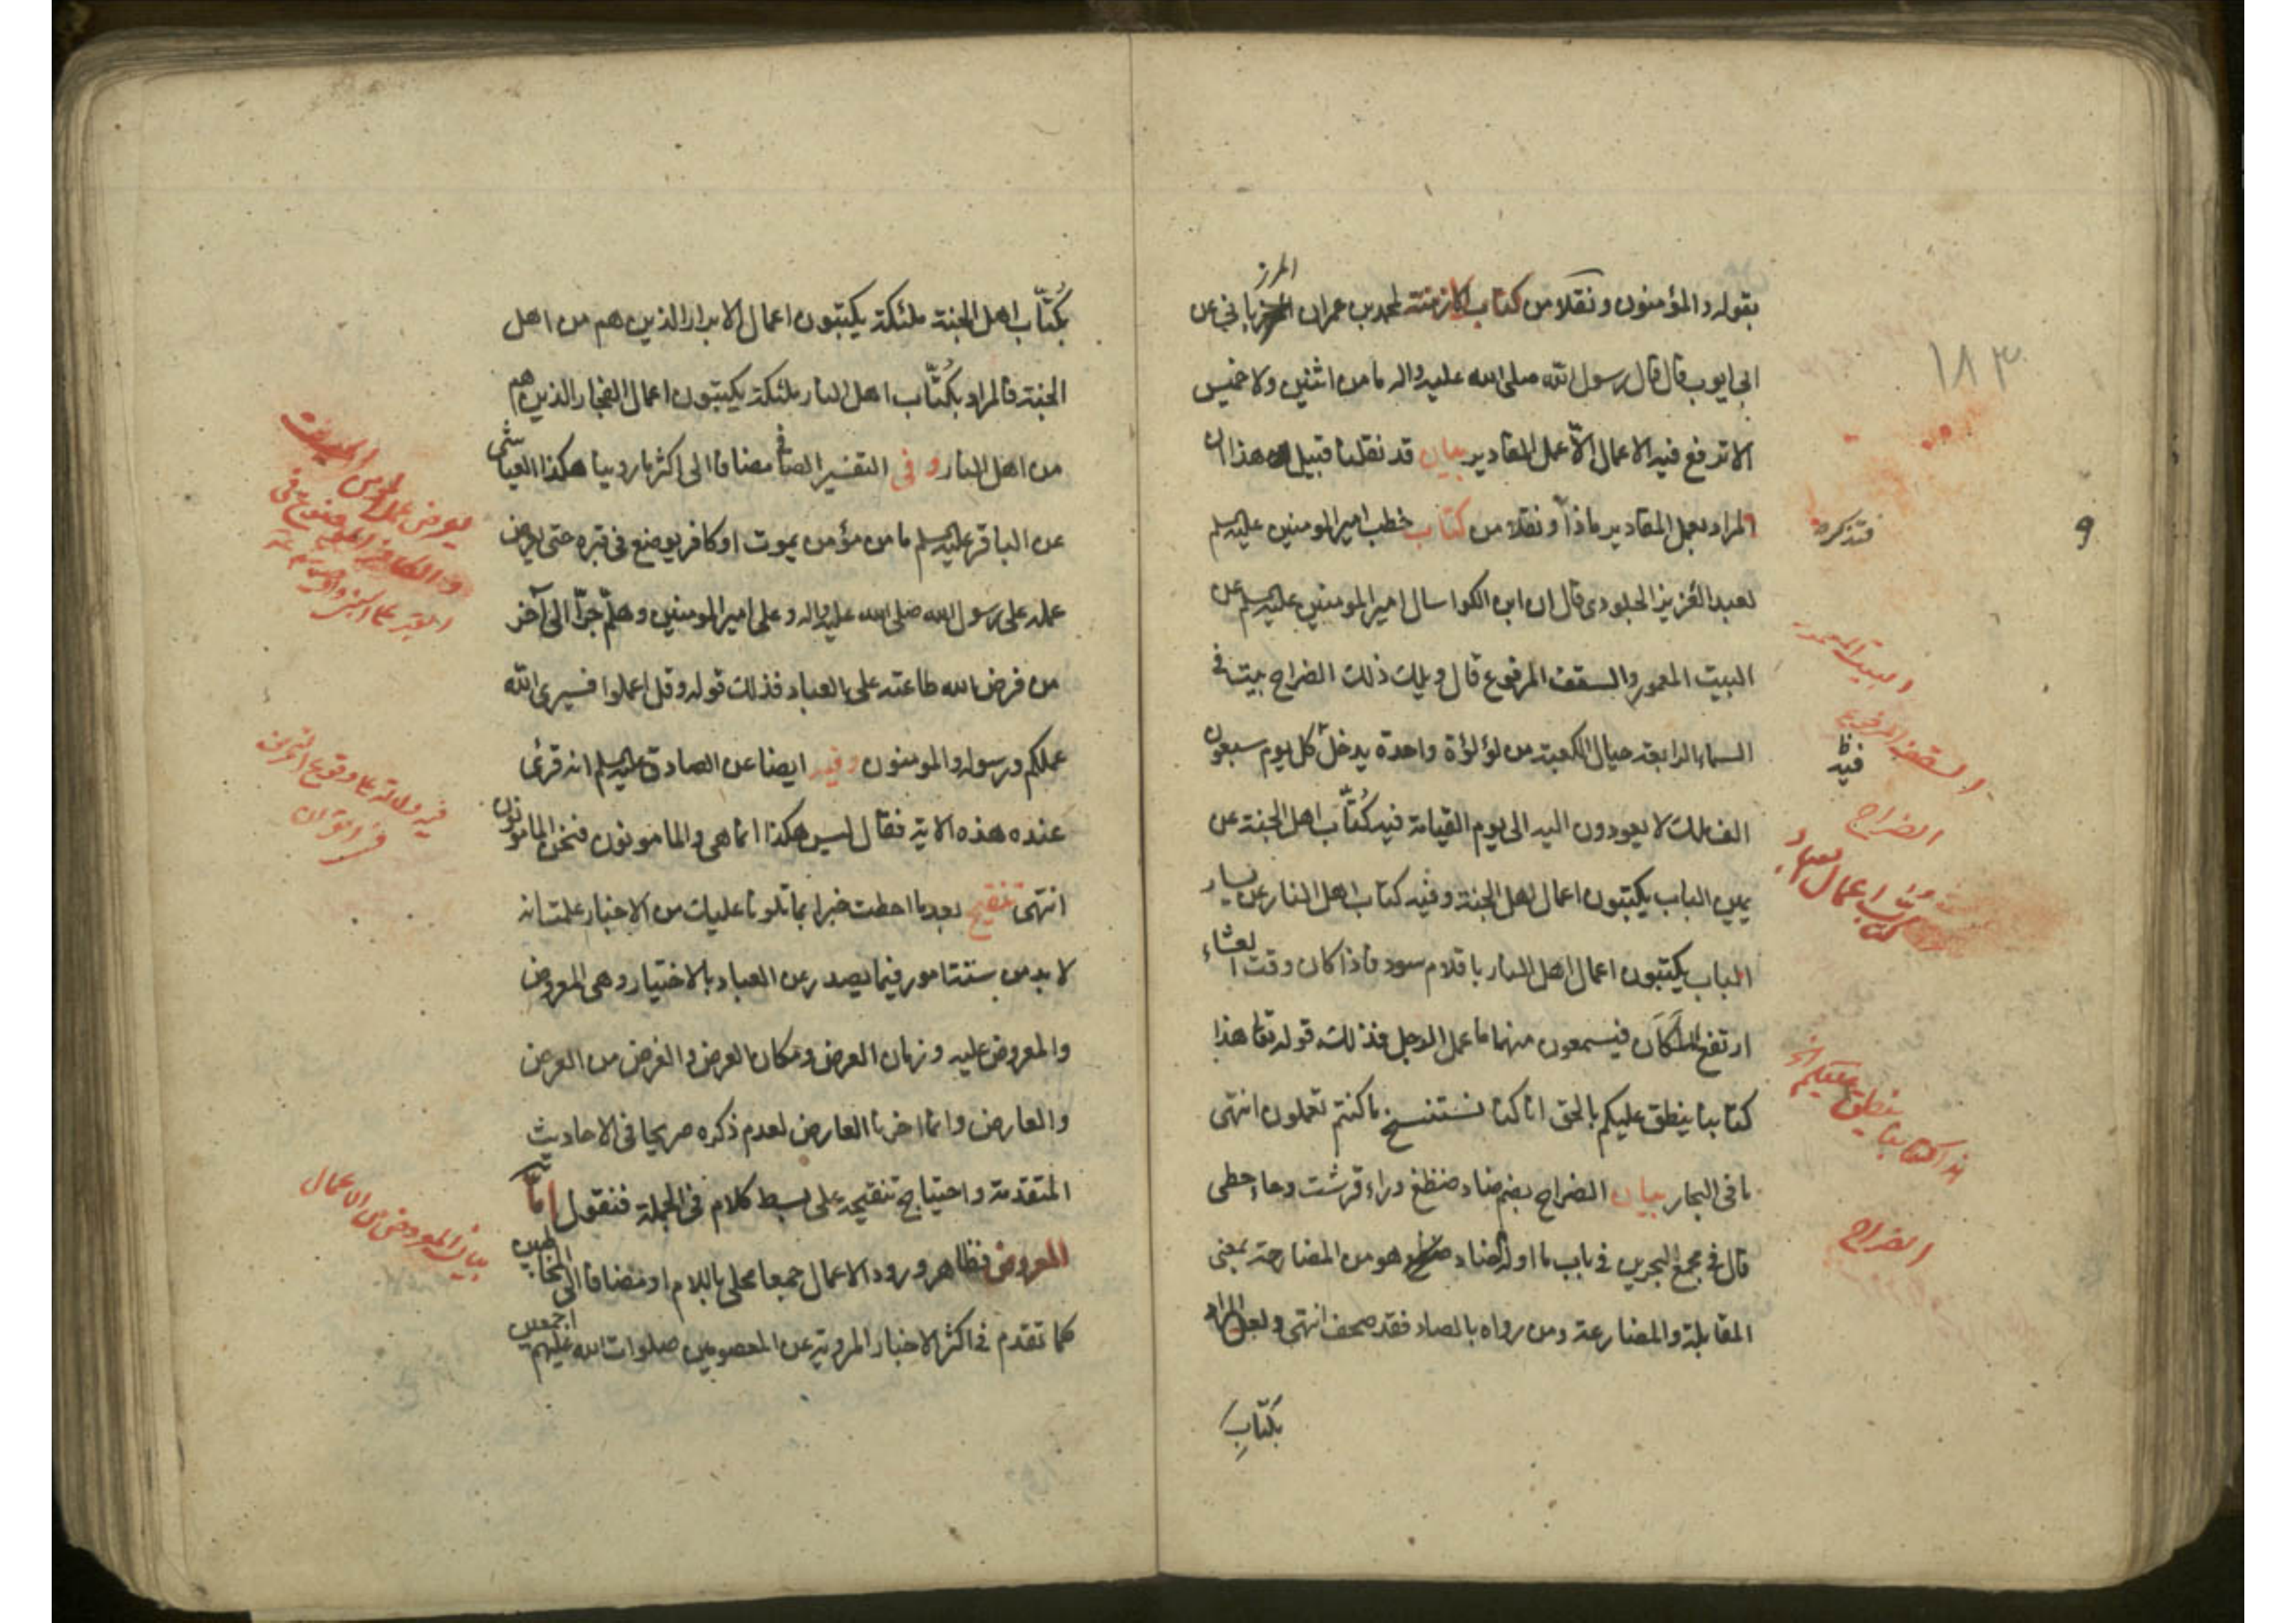 بقوله والمؤمنون ونقلا من كتاب الازمنة لمحمد بن عمران المرزباني عن
ابي ايوب قال قال رسول الله صلى الله عليه واله ما من اثنين ولا خميس
الا ترفع فيه الاعمال الا عمل المقادير بيان قد نقلنا قبيل هذا ان
المراد بعمل المقادير ماذا ونقلا من كتاب خطب امير المومنين عليه السلم
فتذكره
لعبد العزيز الجلودى قال ان ابن الكوا سال امير المومنين عليه السلم عن
البيت المعمور والسقف المرفوع قال ويلك ذلك الضراح بيت فى
السماء الرابعة حيال الكعبة من لؤلؤة واحدة يدخل كل يوم سبعون
الف ملك لا يعودون اليه الى يوم القيامة فيه كُتّاب اهل الجنة عن
يمين الباب يكتبون اعمال اهل الجنة وفيه كتاب اهل النار عن يسار
الباب يكتبون اعمال اهل النار باقلام سود فاذا كان وقت العشاء
ارتفع الملكان فيسمعون منهما ما عمل الرجل فذلك قوله تعا هذا
كتابنا ينطق عليكم بالحق انا كنا نستنسخ ما كنتم تعملون انتهى
ما فى البحار بيان الضراح بضم ضاد ضظغ وراء قرشت وحاء حطى
قال فى مجمع البحرين فى باب ما اوله الضاد هو من المضارحة بمعنى
المقابلة والمضارعة ومن رواه بالصاد فقد صحف انتهى ولعل المراد
بكتاب
١٨٣
9
البيت المعمور
السقف المرفوع
فيه
الضراح
كتاب اعمال العباد
هذا كتابنا ينطق عليكم الخ
الضراح
بكُتّاب اهل الجنة ملئكة يكتبون اعمال الابرار الذين هم من اهل
الجنة فالمراد بكُتّاب اهل النار ملئكة يكتبون اعمال الفجار الذين هم
من اهل النار وفى التفسير الصافى مضافا الى اكثر ما روينا هكذا العياشى
عن الباقر عليه السلم ما من مؤمن يموت او كافر يوضع فى قبره حتى يعرض
عمله على رسول الله صلى الله عليه واله وعلى امير المومنين وهلم جرّا الى آخر
من فرض الله طاعته على العباد فذلك قوله وقل اعملوا فسيرى الله
عملكم ورسوله والمومنون وفيه ايضا عن الصادق عليه السلم انه قرئ
عنده هذه الاية فقال ليس هكذا انما هى والمامونون فنحن المامونون
انتهى تنقيح بعد ما احطت خبرا بما تلونا عليك من الاخبار علمت انه
لا بد من ستة امور فيما يصدر عن العباد بالاختيار وهى المعروض
والمعروض عليه وزمان العرض ومكان العرض والغرض من العرض
والعارض وانما اخرنا العارض لعدم ذكره صريحا فى الاحاديث
المتقدمة واحتياج تنقيحه على بسط كلام فى الجملة فنقول امّا
المعروض فظاهر ورود الاعمال جمعا محلى باللام او مضافا الى
كما تقدم فى اكثر الاخبار المروية عن المعصومين صلوات الله عليهم اجمعين
فيه دلالة على وقوع التحريف
فى القران
بيان المعروض من الاعمال